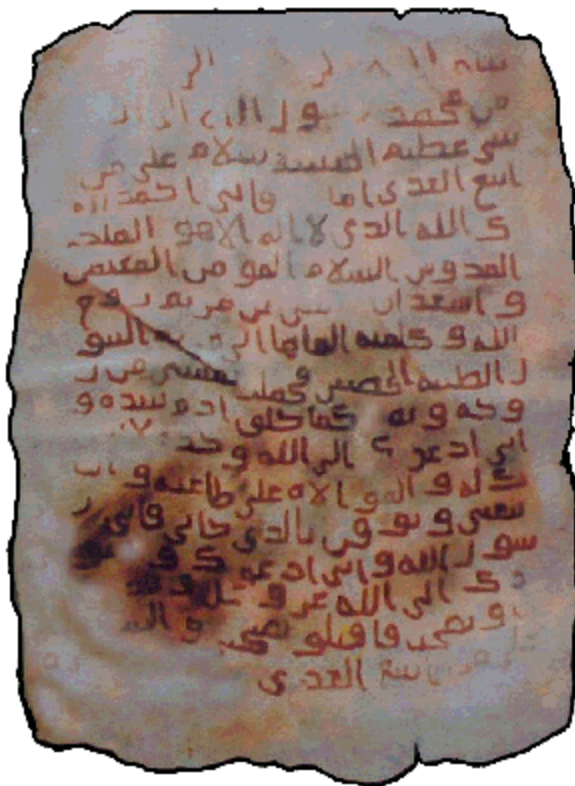 من محمد رسول الله الى
شي عظيم الحبشة سلام على من
اتبع الهدى اما فاني احمد الي
ك الله الذي لا اله الا هو الملك
القدوس السلام المومن المهيمن
و اشهد ان عيسى بن مريم روح
الله و كلمته القاها الى مريم البتو
ل الطيبة الحصينة فحملت بعيسى من ر
وحه و نفخه كما خلق ادم بيده و
اني ادعوك الى الله وحده
يك له و الموالاه على طاعته و ان
تتبعني و توقن بالذي جاني فاني ر
سول الله و اني ادعوك و جنو
دك الى الله عز و جل و
و نصحت فاقبلو نصحي و السلا
على من اتبع الهدى